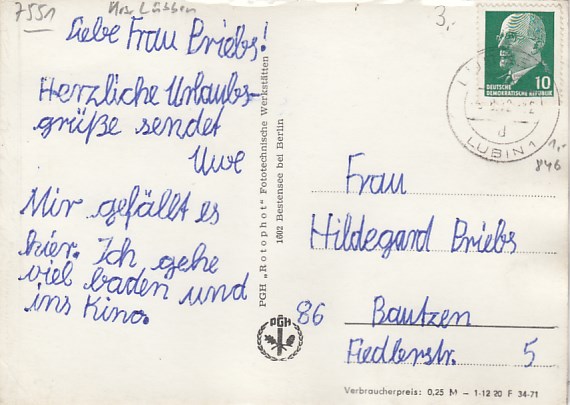 7551
Krs. Lübben
3,-
Liebe Frau Briebs!
Herzliche Urlaubs-
grüße sendet
Uwe
Mir gefällt es
hier. Ich gehe
viel baden und
ins Kino.
PGH „Rotophot“ Fototechnische Werkstätten
1602 Bestensee bei Berlin
PGH
10
DEUTSCHE
DEMOKRATISCHE REPUBLIK
d
LUBIN 1
1,-
846
Frau
Hildegard Briebs
86 Bautzen
Fiedlerstr. 5
Verbraucherpreis: 0,25 M – 1-12 20 F 34-71